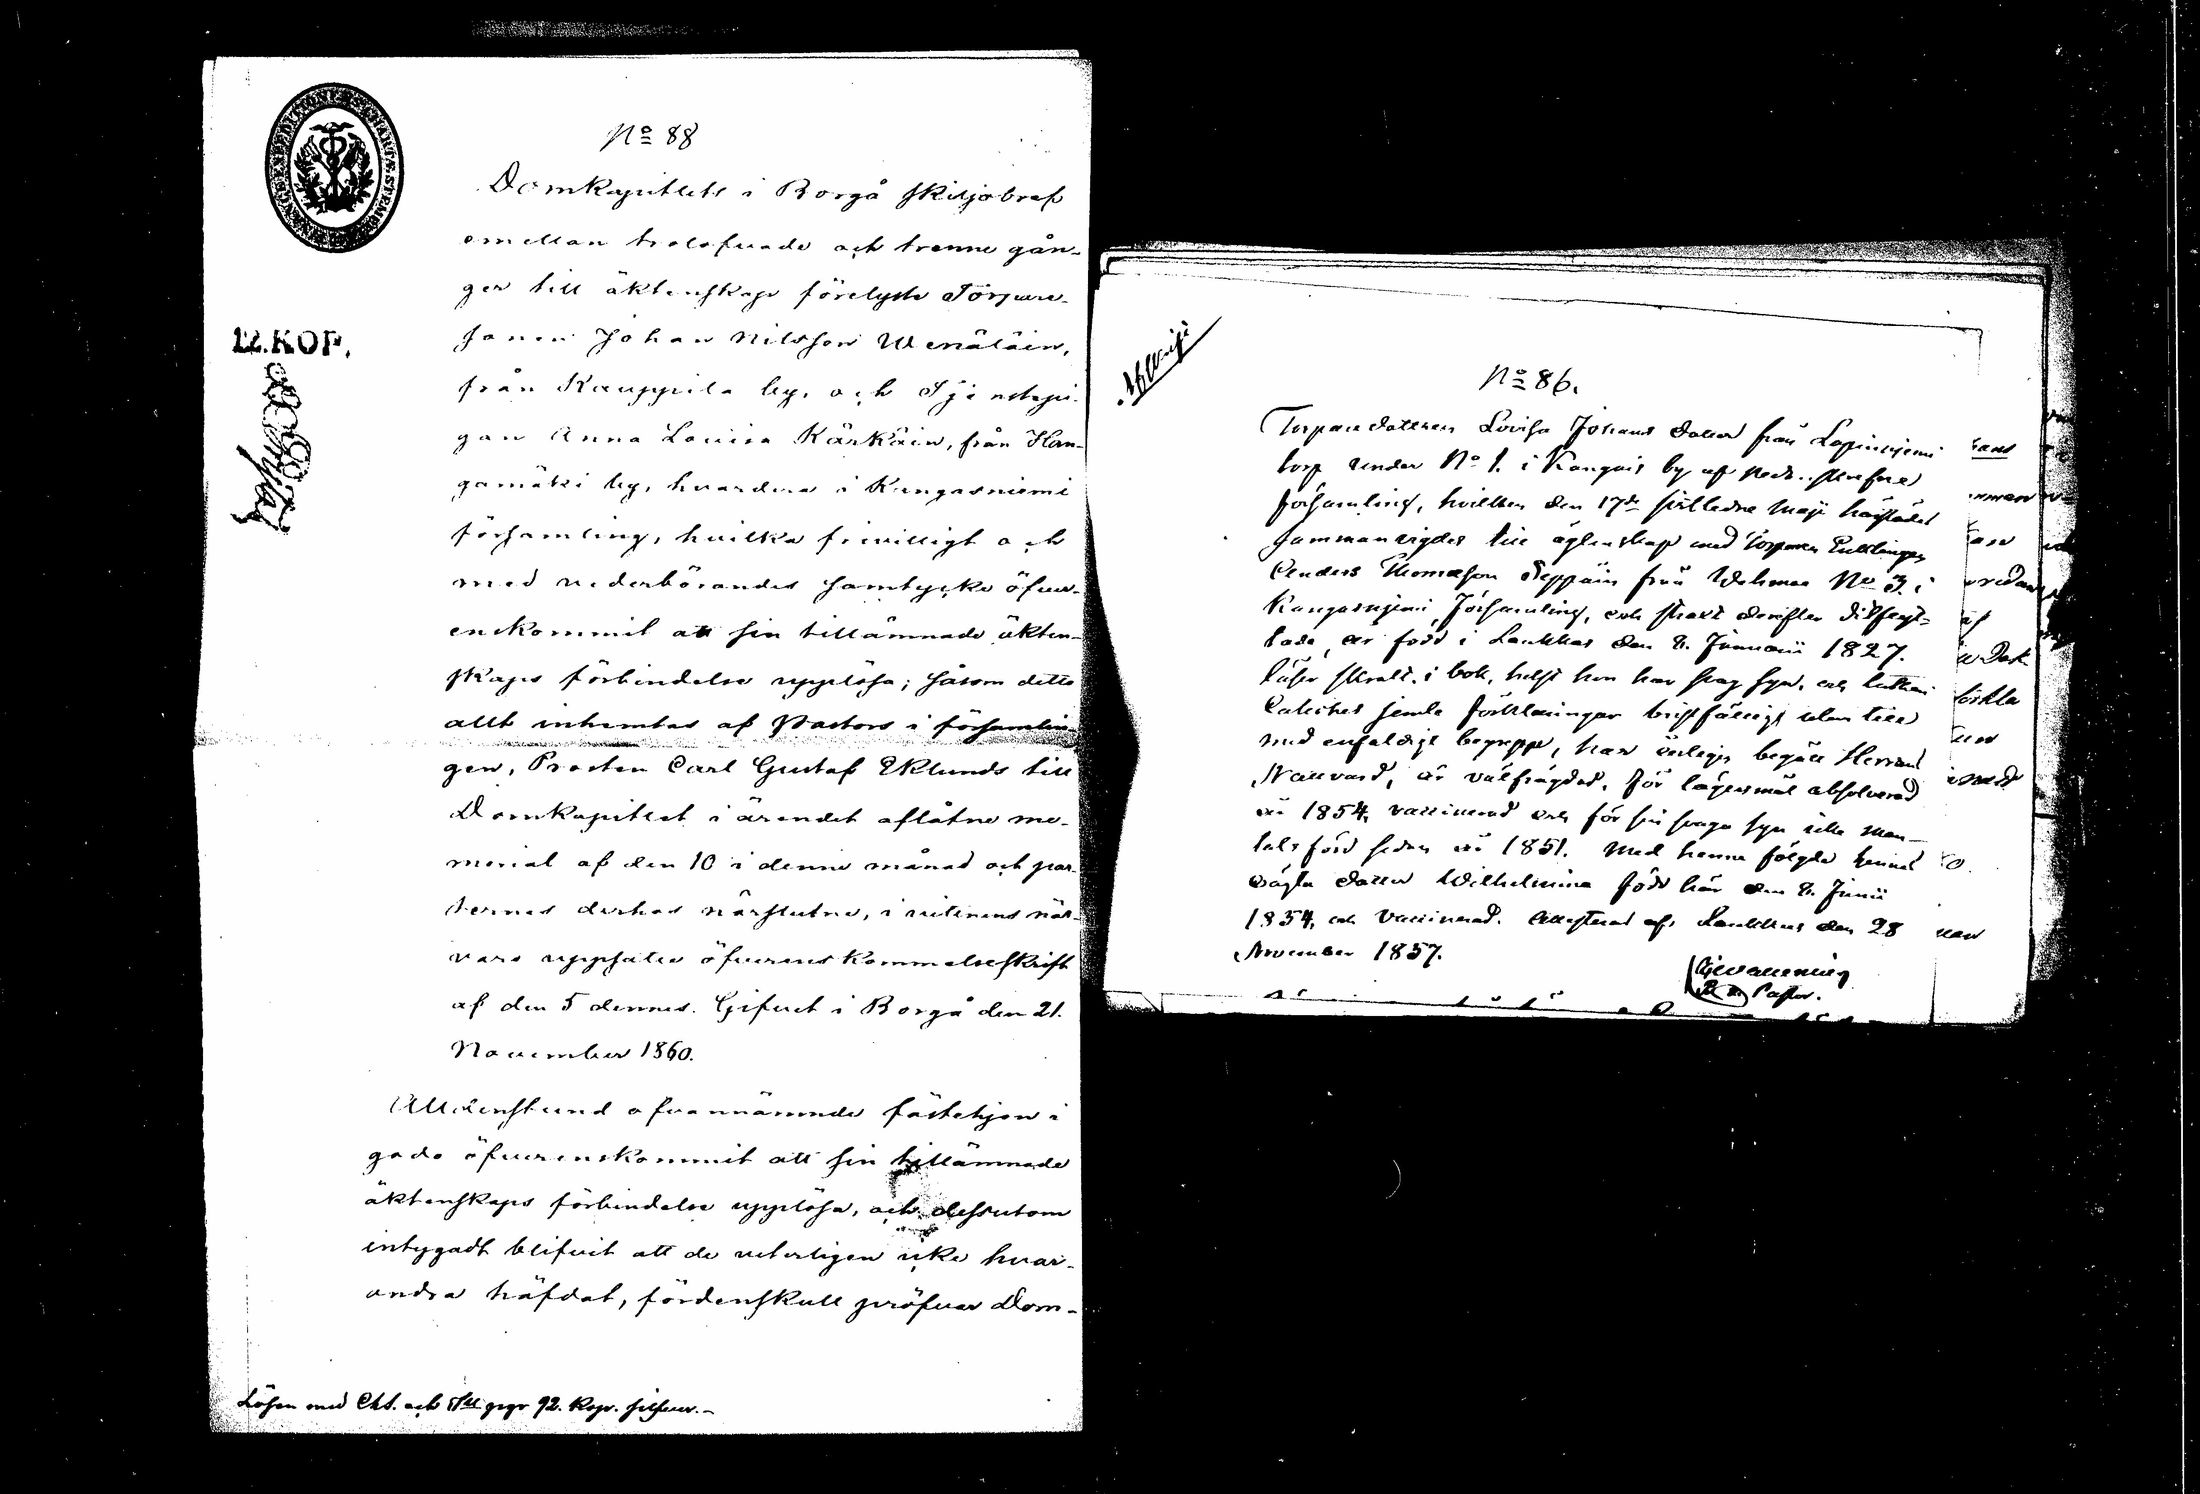 12. KOP.
No 88
Domkapitlets i Borgå skiljobref
emellan trolofvade och trenne gån-
ger till äktenskap förelyste Torpare-
sonen Johan Nilsson Wenäläin,
från Kauppila by, och Tjenstepi-
gan Anna Lovisa Kärkäin, från Han-
gamäki by, hvardera i Kangasniemi
församling, hvilka frivilligt och
med vederbörandes samtycke öfver-
enskommit att sin tillämnade äkten-
skaps förbindelse upplösa; såsom detta
allt inhemtas af Pastors i församlin-
gen, Prosten Carl Gustaf Eklunds till
Domkapitlet i ärendet aflåtne me-
morial af den 10 i denne månad och par-
ternes derhos närslutne, i vittnens när-
varo uppsatte öfverenskommelseskrift
af den 5 dennes. Gifvet i Borgå den 21.
November 1860.
Alldenstund ofvannämnde fästehjon i
godo öfverenskommit att sin tillämnade
äktenskaps förbindelse upplösa, och dessutom
intygadt blifvit att de veterligen icke hvar-
andra häfdat, fördenskull pröfvar Dom-
Lösen med Cht. och gr 92. Kop. silfver.
No 86.
Torparedottren Lovisa Johans dotter från Lapinniemi
torp under No 1. i Kangais by af
församling, hvilken den 17de sistledne Maji härstädes
sammanvigdes till äktenskap med Torpare Enklingen
Anders Thomasson Seppäin från No 3. i
Kangasniemi församling, och strax derefter ditflyt-
tade, är född i Laukkas den 8. Januarii 1827.
läser i bok, helst hon har svag syn, och Lutheri
Catches jemte förklaringar utan till
med enfaldigt begrepp, har begått Herrans
Nattvard, är välfrägdad, för lägersmål absolverad
år 1854, vaccinerad och för sin svaga syn icke man-
talsförd sedan år 1851. Med henne följde hennes
oägta dotter Wilhelmina född här den 8. Junii
1854, och vaccinerad. Attesteras af, Laukkas den 28
November 1857.
Pastor.